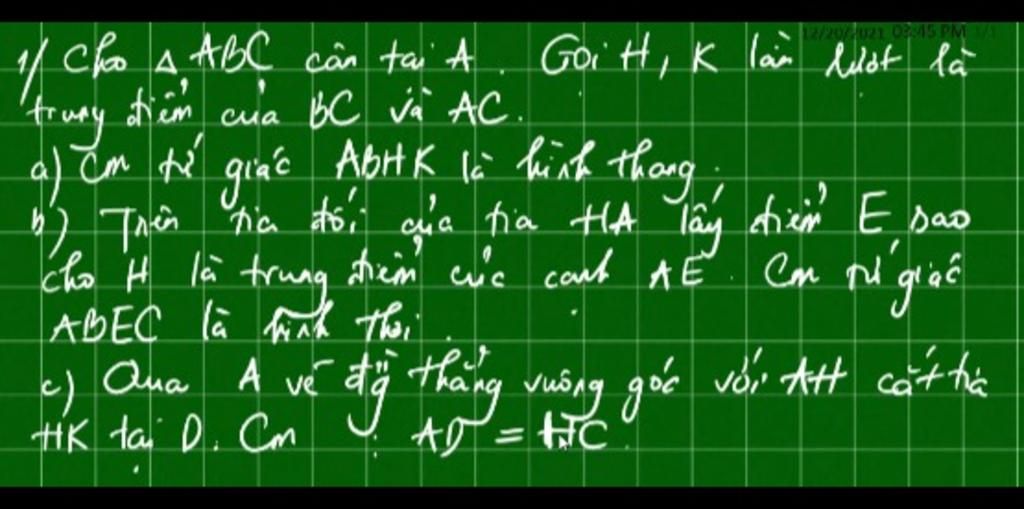 12/20/2021 03:45 PM 1/1
1/ Cho △ ABC cân tại A. Gọi H, K lần lượt là
trung điểm của BC và AC.
a) Cm tứ giác ABHK là hình thang.
b) Trên tia đối của tia HA lấy điểm E sao
cho H là trung điểm của cạnh AE. Cm tứ giác
ABEC là hình thoi.
c) Qua A vẽ đg̃ thẳng vuông góc với AH cắt tia
HK tại D. Cm : AD = HC.